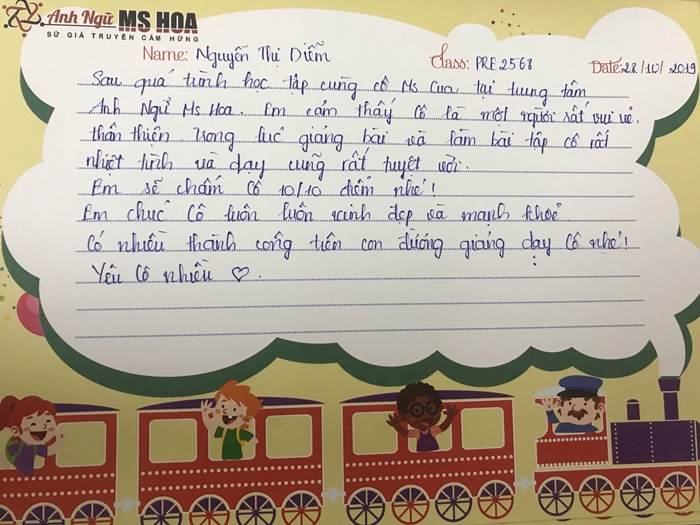 Anh Ngữ MS HOA
SỨ GIẢ TRUYỀN CẢM HỨNG
Name: Nguyễn Thị Diễm Class: PRE2568 Date: 28/10/2019
Sau quá trình học tập cùng cô Ms Cua tại trung tâm
Anh Ngữ Ms Hoa. Em cảm thấy Cô là một người rất vui vẻ,
thân thiện trong lúc giảng bài và làm bài tập cô rất
nhiệt tình và dạy cũng rất tuyệt vời.
Em sẽ chấm Cô 10/10 điểm nhé!
Em chúc Cô luôn luôn xinh đẹp và mạnh khoẻ
Có nhiều thành công trên con đường giảng dạy Cô nhé!
Yêu Cô nhiều ♡.